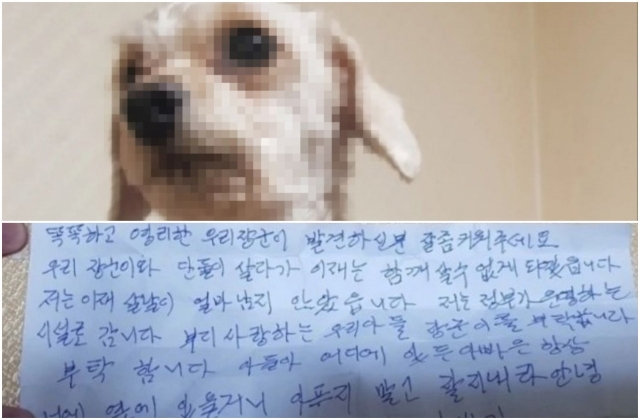 똑똑하고 영리한 우리장군이 발견하신분 잘좀키워주세요
우리 장군이와 단둘이 살다가 이재는 함께 살수 없게 되었습니다
저는 이재 살날이 얼마 남지 않았습니다 저는 정부가 운영하는
시설로 갑니다 부디 사랑하는 우리아들 장군이를 부탁합니다
부탁 합니다 아들아 어디에 있든 아빠은 항상
너에 옆에 있을거니 아프지 말고 잘지내라 안녕